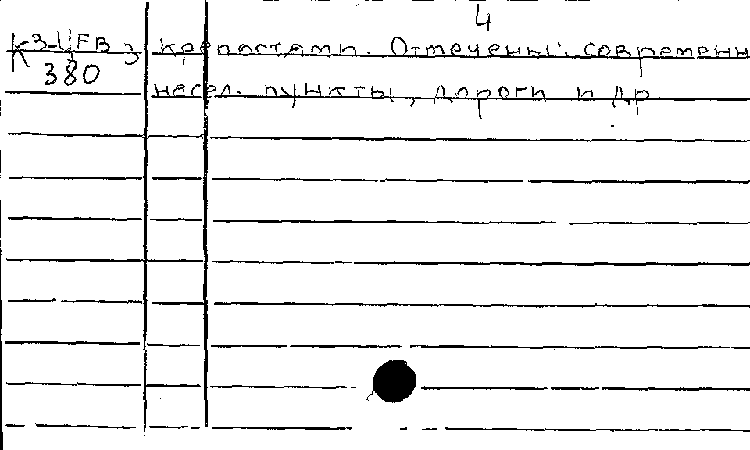 4
К3-ЦFB 3 крепостями. Отмечены: современ
380
насел. пункты, дороги и др